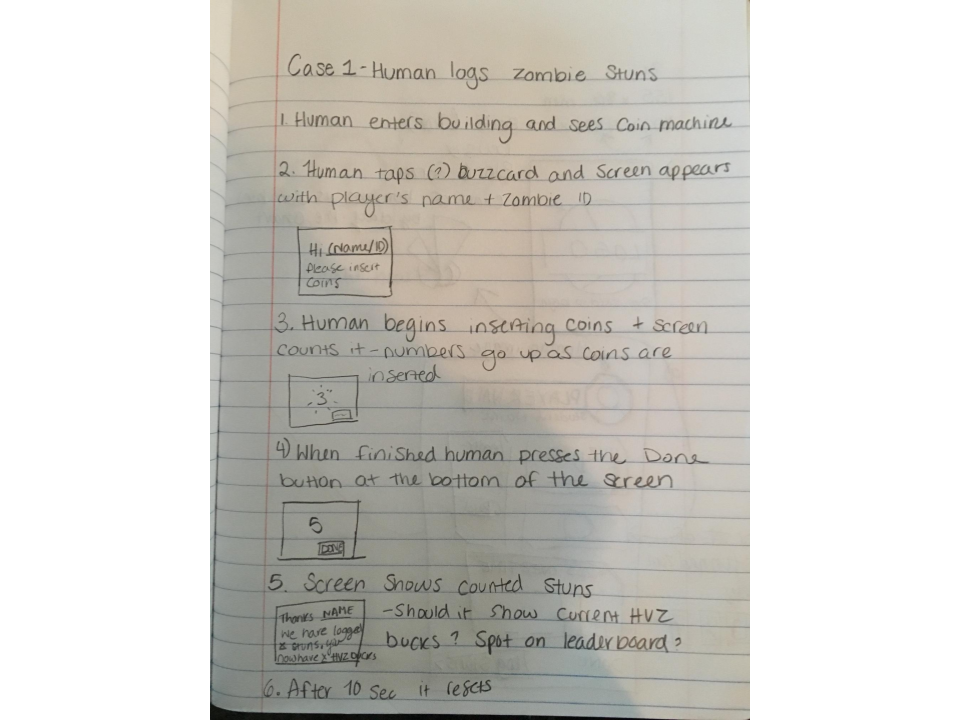 Case 1 - Human logs zombie stuns
1. Human enters building and sees coin machine
2. Human taps (?) buzzcard and screen appears
with player's name + zombie ID
Hi (Name/ID)
please insert
coins
3. Human begins inserting coins + screen
counts it - numbers go up as coins are
inserted
3
4) When finished human presses the Done
button at the bottom of the screen
5
DONE
5. Screen shows counted stuns
Thanks NAME
We have logged
x stuns, you
now have x HVZ bucks
- Should it show current HVZ
bucks? Spot on leaderboard?
6. After 10 sec it resets